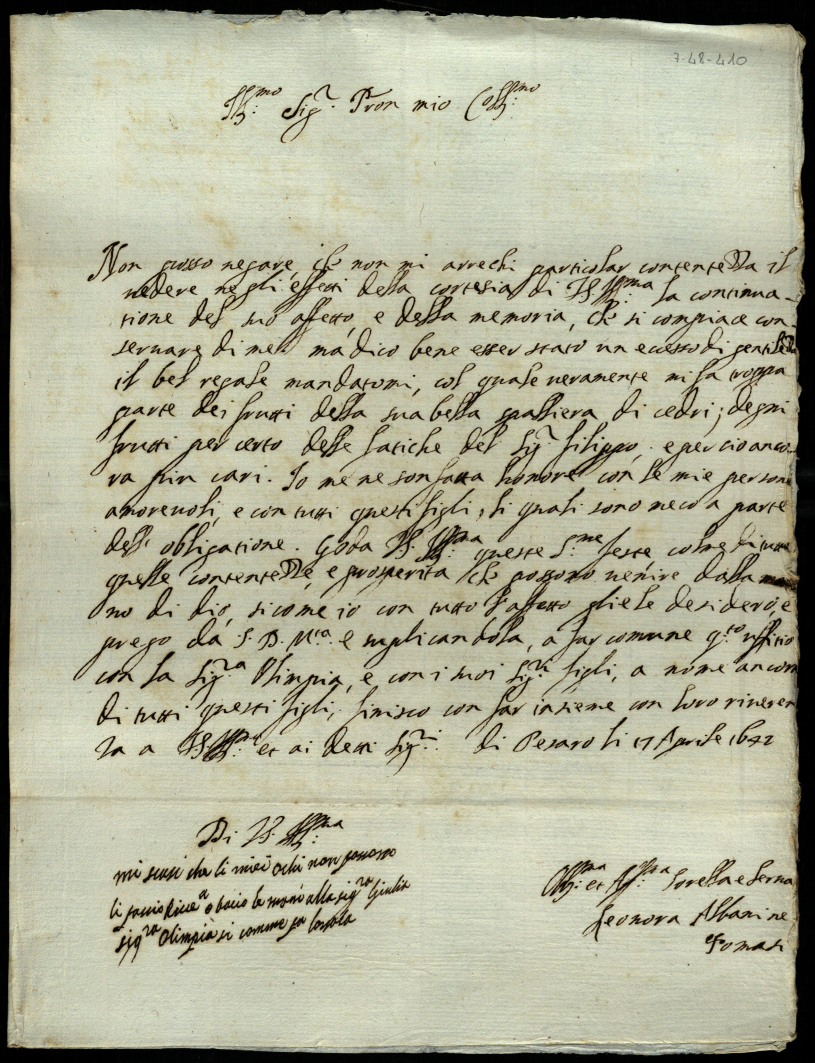 7-48-410
Ill:mo Sig.r Pron mio Coll:mo
Non posso negare, che non mi arrechi particolar contentezza il
vedere negli effetti della cortesia di V.S. Ill:ma la continua-
tione del suo affetto, e della memoria, che si compiace con-
servare di me: ma dico bene esser stato un ecesso di gentilezza
il bel regale mandatomi, col quale veramente mi fa troppa
parte dei frutti della sua bella spalliera di cedri; degni
frutti per certo delle fatiche del Sig.r Filippo, e per cio anco-
ra piu cari. Io me ne son fatta honore con le mie persone
amorevoli, e con tutti questi figli, li quali sono meco a parte
dell'obligatione. Goda V.S. Ill:ma queste S.me feste colme di tutte
quelle contentezze, e prosperità che possono venire dalla ma-
no di Dio, sicome io con tutto l'affetto gliele desidero, e
prego da S. D. M.tà e suplicandola, a far comune q.to uffitio
con la Sig.ra Olimpia, e con i suoi Sig.ri figli, a nome ancora
di tutti questi figli, finisco con far insieme con loro riveren
za a V.S. Ill:ma et ai detti Sig.ri di Pesaro li 17 Aprile 1642
Di V.S. Ill:ma
mi scusi che li miei ochi non possono
li facio rive.a e bacio le mani alla sig.ra Giulia
sig.ra Olimpia si comme fa
Obb:ma et Aff:ma Sorella e Serva
Leonora Albani ne
Tomasi